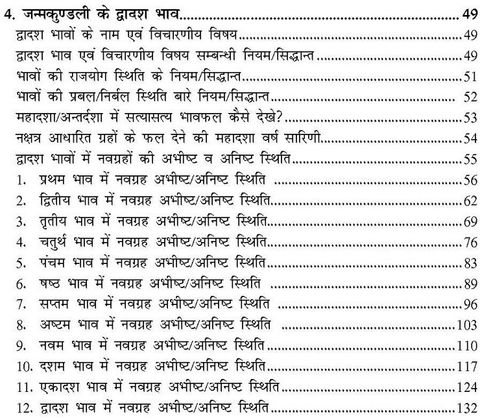 4. जन्मकुण्डली के द्वादश भाव.......................................................................49
द्वादश भावों के नाम एवं विचारणीय विषय...................................................49
द्वादश भाव एवं विचारणीय विषय सम्बन्धी नियम/सिद्धान्त................................49
भावों की राजयोग स्थिति के नियम/सिद्धान्त..................................................51
भावों की प्रबल/निर्बल स्थिति बारे नियम/सिद्धान्त..........................................52
महादशा/अन्तर्दशा में सत्यासत्य भावफल कैसे देखे?.......................................53
नक्षत्र आधारित ग्रहों के फल देने की महादशा वर्ष सारिणी................................54
द्वादश भावों में नवग्रहों की अभीष्ट व अनिष्ट स्थिति.......................................55
1. प्रथम भाव में नवग्रह अभीष्ट/अनिष्ट स्थिति ............................................56
2. द्वितीय भाव में नवग्रह अभीष्ट/अनिष्ट स्थिति ..........................................62
3. तृतीय भाव में नवग्रह अभीष्ट/अनिष्ट स्थिति ...........................................69
4. चतुर्थ भाव में नवग्रह अभीष्ट/अनिष्ट स्थिति............................................76
5. पंचम भाव में नवग्रह अभीष्ट/अनिष्ट स्थिति ............................................83
6. षष्ठ भाव में नवग्रह अभीष्ट/अनिष्ट स्थिति .............................................89
7. सप्तम भाव में नवग्रह अभीष्ट/अनिष्ट स्थिति ...........................................96
8. अष्टम भाव में नवग्रह अभीष्ट/अनिष्ट स्थिति .........................................103
9. नवम भाव में नवग्रह अभीष्ट/अनिष्ट स्थिति...........................................110
10. दशम भाव में नवग्रह अभीष्ट/अनिष्ट स्थिति..........................................117
11. एकादश भाव में नवग्रह अभीष्ट/अनिष्ट स्थिति.......................................124
12. द्वादश भाव में नवग्रह अभीष्ट/अनिष्ट स्थिति.........................................132